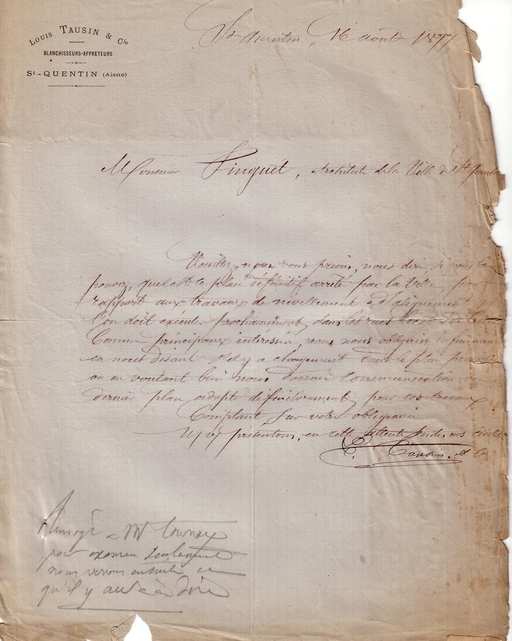 LOUIS TAUSIN & Cie
BLANCHISSEURS-APPRÊTEURS
St-QUENTIN (Aisne)
St Quentin, 16 Août 18
Monsieur Pinguet, Architecte de la Ville de St Quentin
Veuillez, nous vous prions, nous dire si vous le
pouvez, quel est le plan définitif arrêté par la Ville
rapport aux travaux de nivellement & d'alignement
l'on doit exécuter prochainement dans les rues
Comme principaux intéressés, vous nous obligeriez infiniment
en nous disant s'il y a changement dans le plan
ou en voulant bien nous donner communication
dernier plan adopté définitivement pour ces travaux.
Comptant sur votre obligeance
présentons, en cette attente, nos
Tausin & Cie
à Mr
pour examen seulement
nous verrons ensuite ce
qu'il y aura à dire